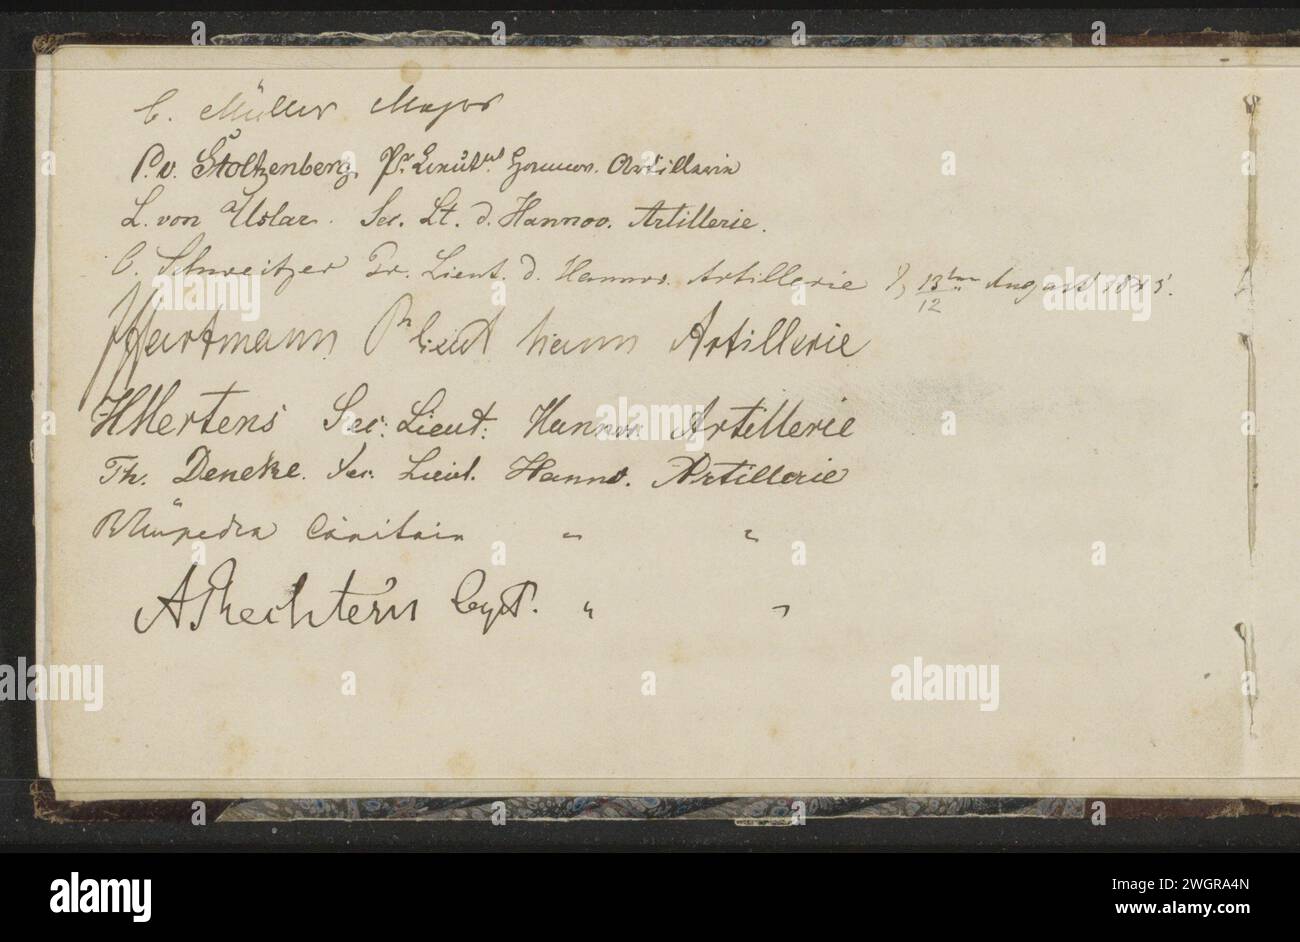 C. Müller Major
P. v. Stoltzenberg, Pr. Lieut. Hannov. Artillerie
L. von Uslar. Sec. Lt. d. Hannov. Artillerie.
C. Schweitzer Pr. Lieut. d. Hannov. Artillerie 13/12 August 1845.
Hartmann Pr Lieut Hann Artillerie
HMertens Sec: Lieut: Hannov Artillerie
Th. Deneke. Sec. Lieut. Hanno. Artillerie
Capitain " "
A Rechtern Capt. " "
alamy
Image ID: 2WGRA4N
www.alamy.com